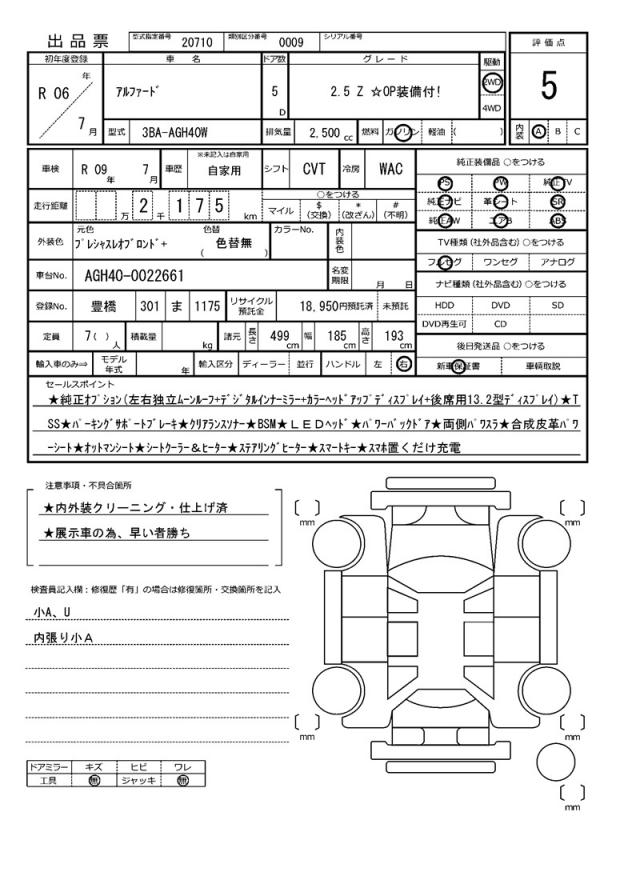 出品票 型式指定番号 20710 類別区分番号 0009 シリアル番号
初年度登録 車名 ドア数 グレード 駆動 評価点
R 06 年 7 月 アルファード 5 D 2.5 Z ☆OP装備付! 2WD 4WD 5
型式 3BA-AGH40W 排気量 2,500 cc 燃料 ガソリン 軽油 ( ) 内装 A B C
車検 R 09 年 7 月 車歴 ※未記入は自家用 自家用 シフト CVT 冷房 WAC
純正装備品 ○をつける
PS PW 純正TV
純正ナビ 革シート SR
純正AW エアB ABS
走行距離 万 2 千 1 7 5 km
○をつける
マイル $ (交換) * (改ざん) # (不明)
外装色 元色 プレシャスレオブロンド+ 色替 ( 色替無 ) カラーNo. 内装色
TV種類 (社外品含む) ○をつける
フルセグ ワンセグ アナログ
車台No. AGH40-0022661 名変期限 月 日
ナビ種類 (社外品含む) ○をつける
HDD DVD SD
DVD再生可 CD
登録No. 豊橋 301 ま 1175 リサイクル預託金 18,950円預託済 未預託
定員 7( ) 人 積載量 kg 諸元 長さ 499 cm 幅 185 cm 高さ 193 cm
後日発送品 ○をつける
新車保証書 車輌取説
輸入車のみ⇒ モデル年式 年 輸入区分 ディーラー 並行 ハンドル 左 右
セールスポイント
★純正オプション(左右独立ムーンルーフ+デジタルインナーミラー+カラーヘッドアップディスプレイ+後席用13.2型ディスプレイ)★T
SS★パーキングサポートブレーキ★クリアランスソナー★BSM★LEDヘッド★パワーバックドア★両側パワスラ★合成皮革パワ
ーシート★オットマンシート★シートクーラー&ヒーター★ステアリングヒーター★スマートキー★スマホ置くだけ充電
注意事項・不具合箇所
★内外装クリーニング・仕上げ済
★展示車の為、早い者勝ち
検査員記入欄:修復歴「有」の場合は修復箇所・交換箇所を記入
小A、U
内張り小A
ドアミラー キズ ヒビ ワレ
工具 無 ジャッキ 無
[ ] mm
[ ] mm
[ ] mm
[ ] mm
[ ] mm